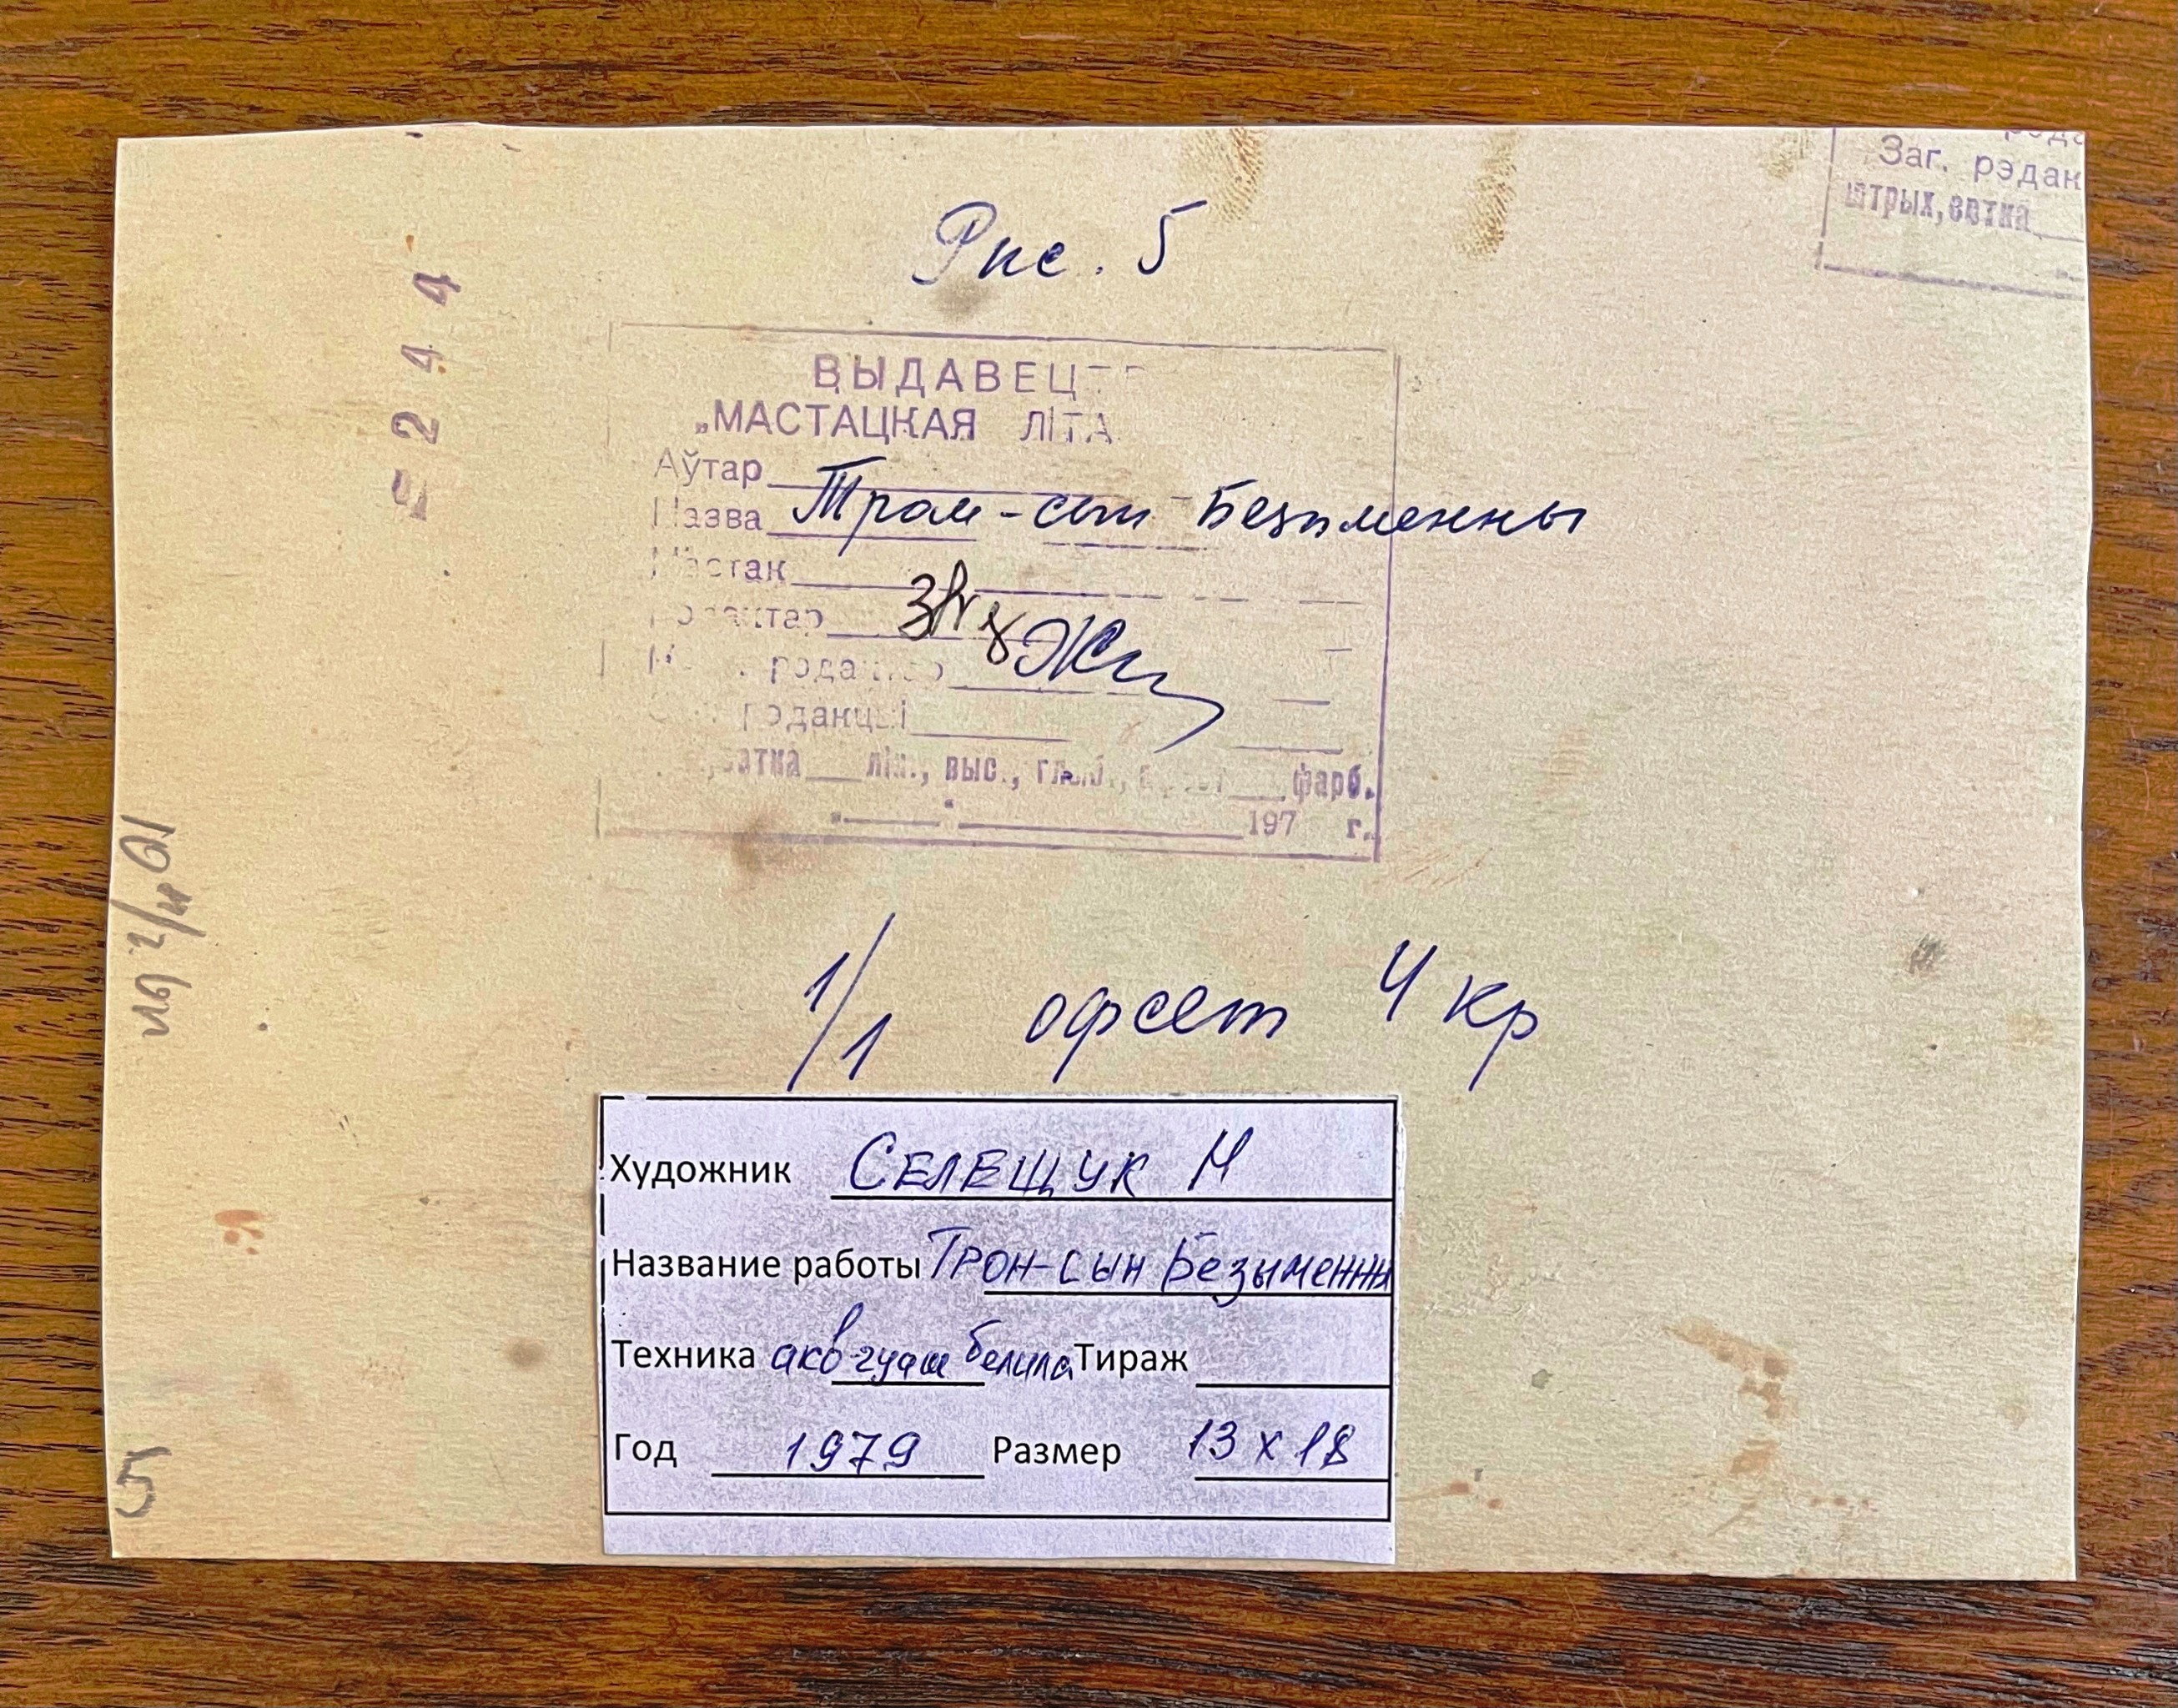 Рис. 5
Заг. рэдак
штрых, сетка
= 2 4 4
ВЫДАВЕЦТ
„МАСТАЦКАЯ ЛІТА
Аўтар
Назва Тром-сын Безыменны
Мастак
Рэдактар
рэдактар
рэдакцыі
сетка лін., выс., глыб., фарб.
„ “ 197 г.
1/1 офсет 4 кр
Художник СЕЛЕЩУК Н
Название работы Трон-сын Безыменны
Техника акв гуаш белила Тираж
Год 1979 Размер 13 х 18
5